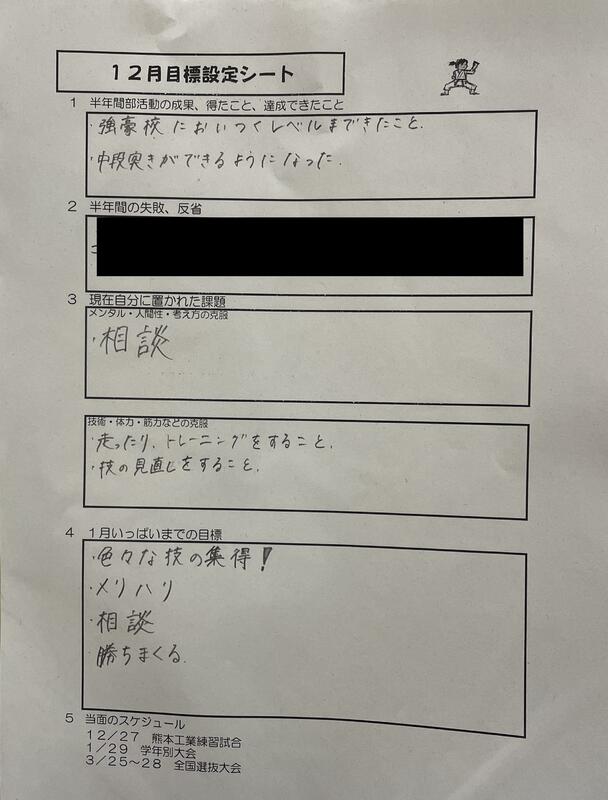 12月目標設定シート
1 半年間部活動の成果、得たこと、達成できたこと
・強豪校においつくレベルまできたこと.
・中段突きができるようになった.
2 半年間の失敗、反省
3 現在自分に置かれた課題
メンタル・人間性・考え方の克服
・相談
技術・体力・筋力などの克服
・走ったり、トレーニングをすること.
・技の見直しをすること.
4 1月いっぱいまでの目標
・色々な技の集得!
・メリハリ
・相談
・勝ちまくる.
5 当面のスケジュール
12/27 熊本工業練習試合
1/29 学年別大会
3/25~28 全国選抜大会